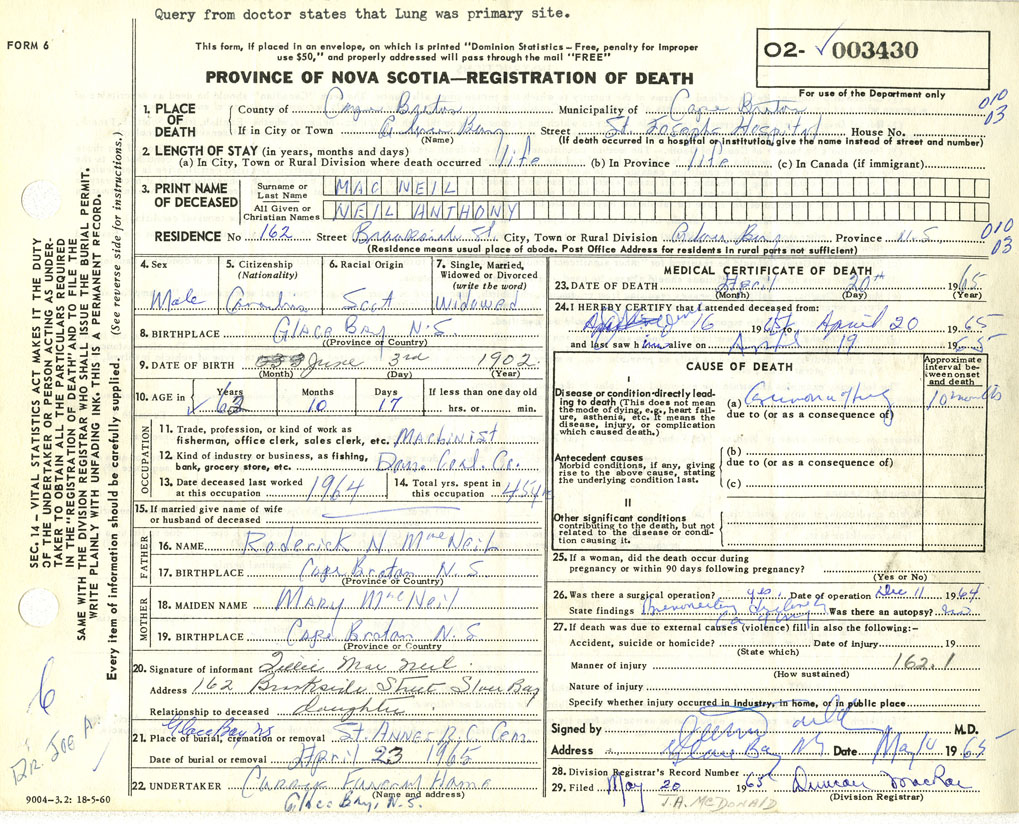 Query from doctor states that Lung was primary site.
FORM 6
This form, if placed in an envelope, on which is printed "Dominion Statistics – Free, penalty for improper
use $50," and properly addressed will pass through the mail "FREE"
O2- ✓ 003430
For use of the Department only
PROVINCE OF NOVA SCOTIA—REGISTRATION OF DEATH
010
03
1. PLACE OF DEATH
County of Cape Breton Municipality of Cape Breton
If in City or Town Glace Bay (Name) Street St. Josephs Hospital House No.
(If death occurred in a hospital or institution, give the name instead of street and number)
2. LENGTH OF STAY (in years, months and days)
(a) In City, Town or Rural Division where death occurred life (b) In Province life (c) In Canada (if immigrant)
3. PRINT NAME OF DECEASED
Surname or Last Name MAC NEIL
All Given or Christian Names NEIL ANTHONY
RESIDENCE No 162 Street Brookside St. City, Town or Rural Division Glace Bay Province N.S.
(Residence means usual place of abode. Post Office Address for residents in rural parts not sufficient)
010
03
4. Sex Male
5. Citizenship (Nationality) Canadian
6. Racial Origin Scot
7. Single, Married, Widowed or Divorced (write the word) Widowed
8. BIRTHPLACE GLACE BAY N.S
(Province or Country)
9. DATE OF BIRTH June 3rd 1902
(Month) (Day) (Year)
10. AGE in Years ✓ 62 Months 10 Days 17 If less than one day old hrs. or min.
OCCUPATION
11. Trade, profession, or kind of work as fisherman, office clerk, sales clerk, etc. MACHINIST
12. Kind of industry or business, as fishing, bank, grocery store, etc. Dom. Coal. Co.
13. Date deceased last worked at this occupation 1964
14. Total yrs. spent in this occupation 45
15. If married give name of wife or husband of deceased
FATHER
16. NAME Roderick N. MacNeil
17. BIRTHPLACE Cape Breton N.S
(Province or Country)
MOTHER
18. MAIDEN NAME MARY MacNeil
19. BIRTHPLACE Cape Breton N.S
(Province or Country)
20. Signature of informant Mac Neil
Address 162 Brookside Street Glace Bay
Relationship to deceased daughter
21. Place of burial, cremation or removal Glace Bay NS St Annes R.C. Cem
Date of burial or removal April 23 1965
22. UNDERTAKER Curry Funeral Home
(Name and address)
Glace Bay, N.S.
9004–3.2: 18-5-60
MEDICAL CERTIFICATE OF DEATH
23. DATE OF DEATH April 20th 1965
(Month) (Day) (Year)
24. I HEREBY CERTIFY that I attended deceased from:
16 1965 to April 20 1965
and last saw him alive on April 19 1965
CAUSE OF DEATH
Approximate interval between onset and death
I
Disease or condition directly leading to death (This does not mean the mode of dying, e.g., heart failure, asthenia, etc. It means the disease, injury, or complication which caused death.)
(a) Carcinoma of lung 10 months
due to (or as a consequence of)
Antecedent causes
Morbid conditions, if any, giving rise to the above cause, stating the underlying condition last.
(b)
due to (or as a consequence of)
(c)
II
Other significant conditions
contributing to the death, but not related to the disease or condition causing it.
25. If a woman, did the death occur during pregnancy or within 90 days following pregnancy?
(Yes or No)
26. Was there a surgical operation? yes. Date of operation Dec 11 1964
State findings Ca of lung Was there an autopsy? no
27. If death was due to external causes (violence) fill in also the following:–
Accident, suicide or homicide? Date of injury 19
(State which)
Manner of injury 162.1
(How sustained)
Nature of injury
Specify whether injury occurred in Industry, in home, or in public place
Signed by M.D.
Address Glace Bay NS Date May 14 1965
28. Division Registrar's Record Number
29. Filed May 20 1965 Duncan MacRae
(Division Registrar)
J.A. McDONALD
SEC. 14 – VITAL STATISTICS ACT MAKES IT THE DUTY
OF THE UNDERTAKER OR PERSON ACTING AS UNDER-
TAKER TO OBTAIN ALL THE PARTICULARS REQUIRED
IN THE "REGISTRATION OF DEATH" AND TO FILE THE
SAME WITH THE DIVISION REGISTRAR WHO SHALL ISSUE THE BURIAL PERMIT.
WRITE PLAINLY WITH UNFADING INK. THIS IS A PERMANENT RECORD.
Every item of information should be carefully supplied. (See reverse side for instructions.)
6
DR. JOE A